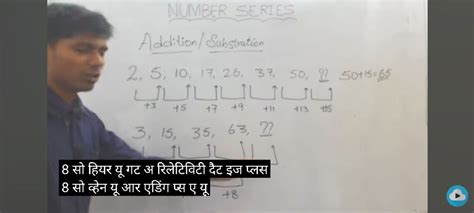 NUMBER SERIES
Addition/Substration
2, 5, 10, 17, 26, 37, 50, ?? 50+15=65
+3 +5 +7 +9 +11 +13 +15
3, 15, 35, 63, ??
8 सो हियर यू गट अ रिलेटिविटी दैट इज प्लस
8 सो व्हेन यू आर एडिंग प्स ए यू
+8